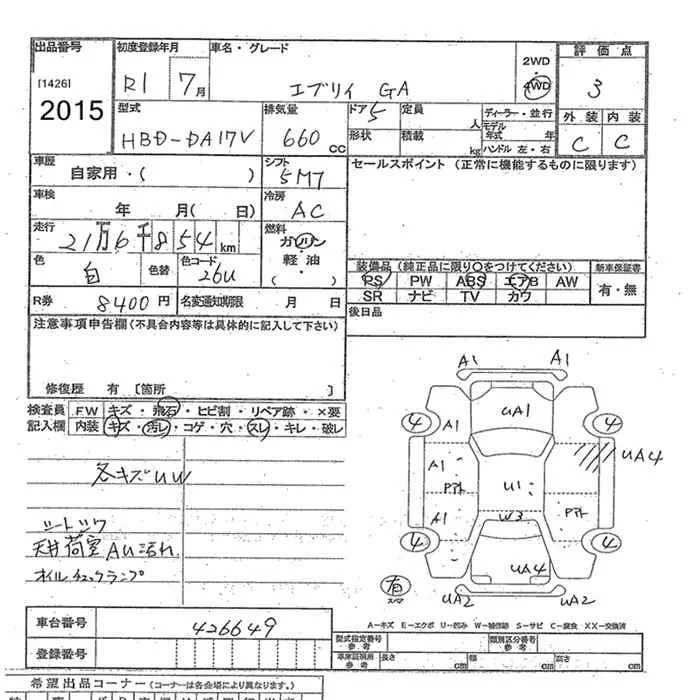 出品番号 初度登録年月 車名・グレード 2WD 評価点
[1426] R1 7月 エブリイ GA 4WD 3
2015 型式 排気量 ドア 5 定員 ディーラー・並行 外装 内装
HBD-DA17V 660 CC 形状 積載 人 kg モデル年式 年 ハンドル 左・右 C C
車歴 シフト セールスポイント (正常に機能するものに限ります)
自家用・( ) 5MT
車検 冷房
年 月( 日) AC
走行 燃料
21万6千854km ガソリン
色 色コード 軽油 装備品 (純正品に限り○をつけてください) 新車保証書
白 色替 26U ( ) PS PW ABS エアB AW 有・無
R券 8400円 名変通知期限 月 日 SR ナビ TV カワ
注意事項申告欄 (不具合内容等は具体的に記入して下さい) 後日品
修復歴 有 〔箇所 〕
検査員 FW キズ・飛石・ヒビ割・リペア跡・×要
記入欄 内装 キズ・汚レ・コゲ・穴・スレ・キレ・破レ
各キズUW
天井荷室AU汚れ
オイルチェックランプ
A1 A1
4 A1 UA1 4
A1 UA4
Pアト U1 Pアト
A1 W3
4 UA4 4
有 UA2 UA2
A-キズ E-エクボ U-凹み W-補修跡 S-サビ C-腐食 XX-交換済
車台番号 426649
登録番号
型式指定番号 参考 類別区分番号 参考
長さ cm 幅 cm 高さ cm
希望出品コーナー (コーナーは各会場により異なります。)